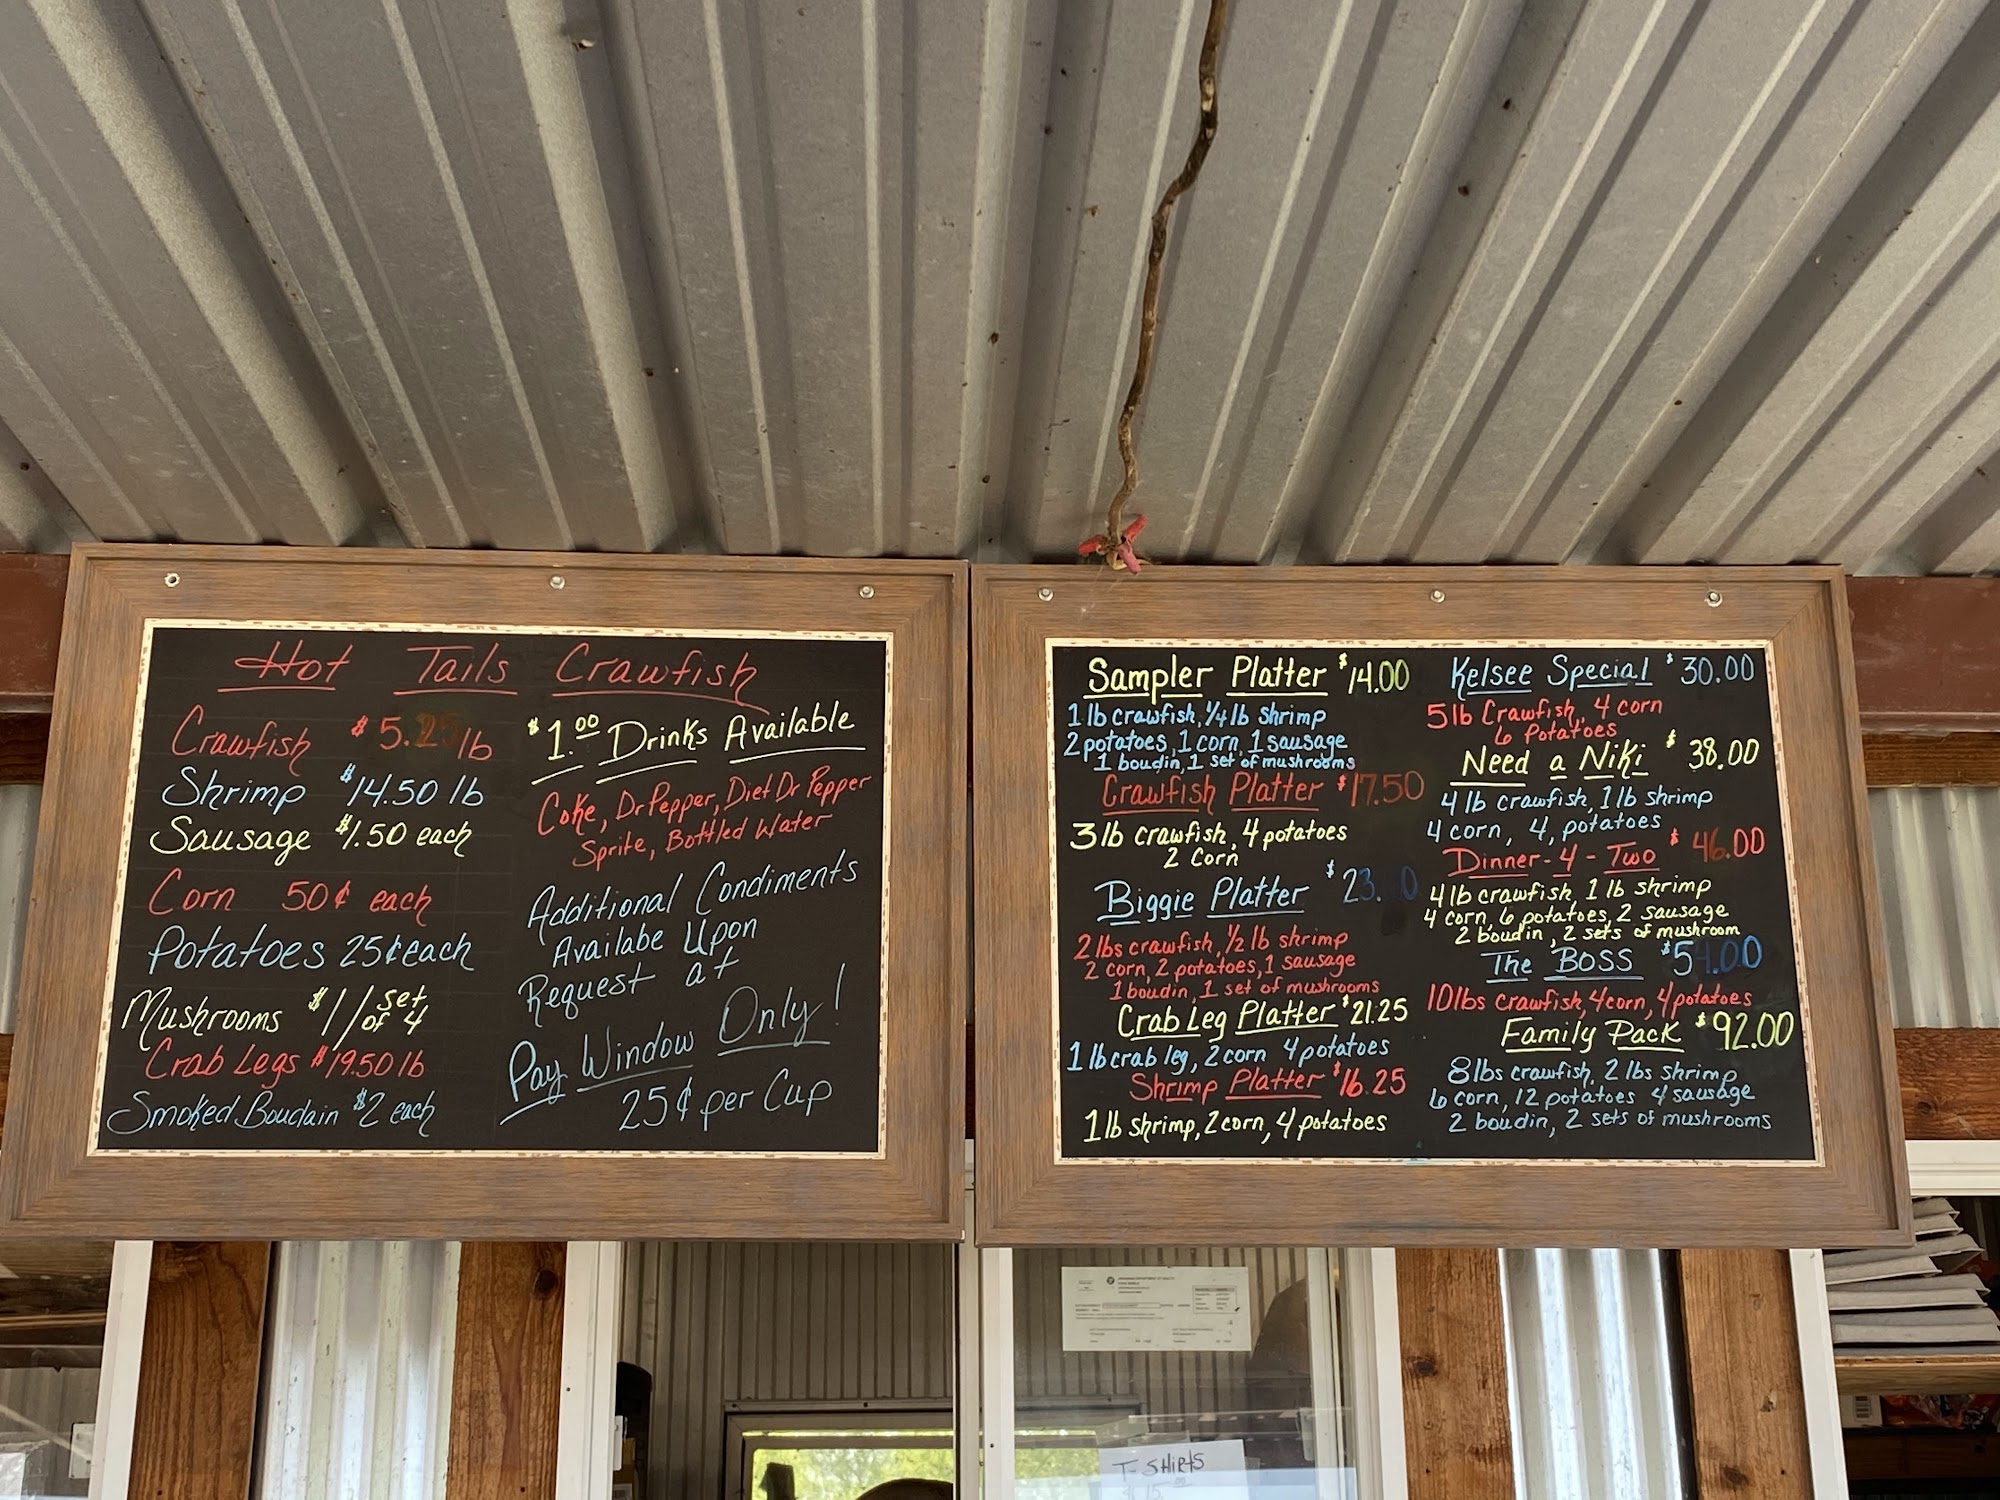 Hot Tails Crawfish
Crawfish $5.25 lb
Shrimp $14.50 lb
Sausage $1.50 each
Corn 50¢ each
Potatoes 25¢ each
Mushrooms $1/set of 4
Crab Legs $19.50 lb
Smoked Boudain $2 each
$1.00 Drinks Available
Coke, Dr Pepper, Diet Dr Pepper
Sprite, Bottled Water
Additional Condiments
Availabe Upon
Request at
Pay Window Only!
25¢ per Cup
Sampler Platter $14.00
1 lb crawfish, 1/4 lb shrimp
2 potatoes, 1 corn, 1 sausage
1 boudin, 1 set of mushrooms
Crawfish Platter $17.50
3 lb crawfish, 4 potatoes
2 Corn
Biggie Platter $23.
2 lbs crawfish, 1/2 lb shrimp
2 corn, 2 potatoes, 1 sausage
1 boudin, 1 set of mushrooms
Crab Leg Platter $21.25
1 lb crab leg, 2 corn 4 potatoes
Shrimp Platter $16.25
1 lb shrimp, 2 corn, 4 potatoes
Kelsee Special $30.00
5 lb Crawfish, 4 corn
6 Potatoes
Need a Niki $38.00
4 lb crawfish, 1 lb shrimp
4 corn, 4, potatoes
Dinner-4-Two $46.00
4 lb crawfish, 1 lb shrimp
4 corn, 6 potatoes, 2 sausage
2 boudin, 2 sets of mushroom
The BOSS $54.00
10 lbs crawfish, 4 corn, 4 potatoes
Family Pack $92.00
8 lbs crawfish, 2 lbs shrimp
6 corn, 12 potatoes 4 sausage
2 boudin, 2 sets of mushrooms
T-SHIRTS